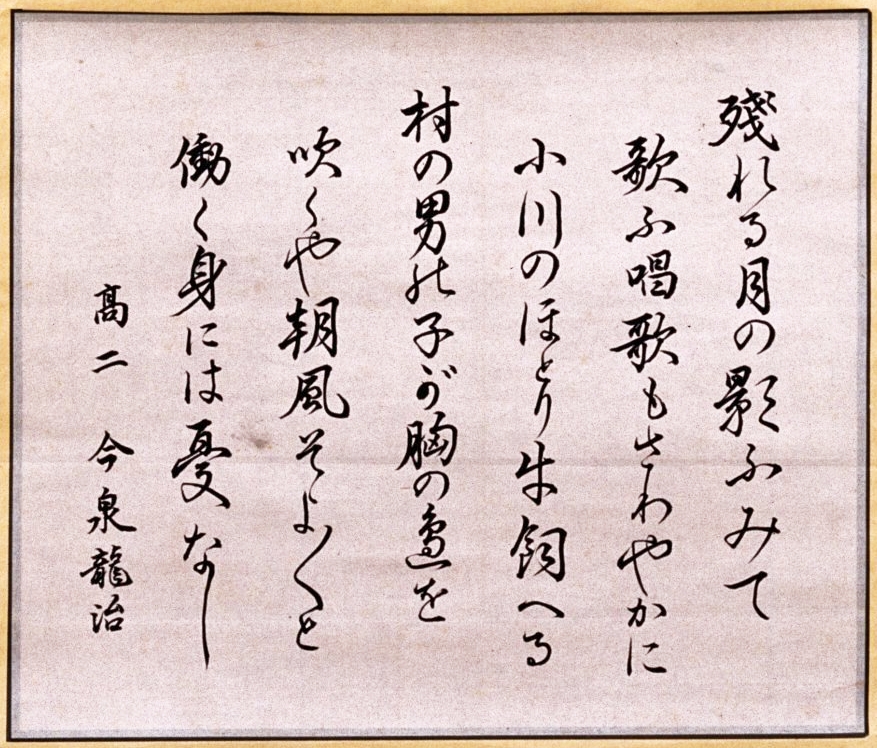 残れる月の影ふみて
歌ふ唱歌もさわやかに
小川のほとり牛飼へる
村の男の子が胸の邊を
吹くや朝風そよ〳〵と
働く身には憂なし
高二 今泉龍治